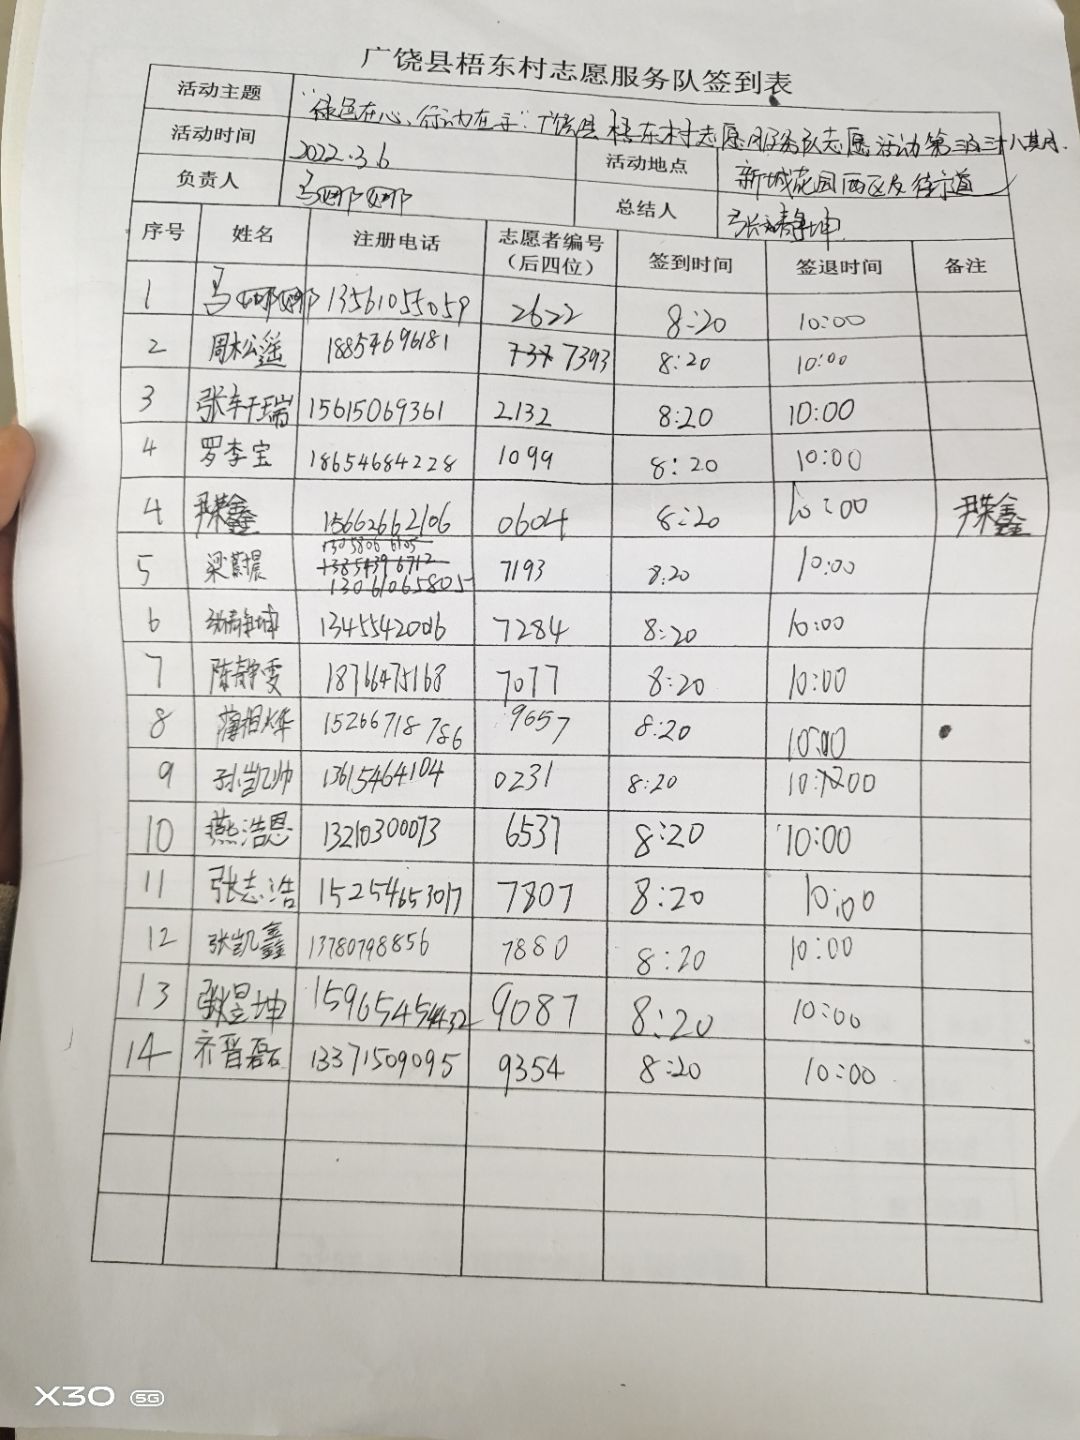 广饶县梧东村志愿服务队签到表
活动主题 "绿色在心,行动在手"广饶县梧东村志愿服务队志愿活动第三百三十八期
活动时间 2022.3.6 活动地点 新城花园西区及街道
负责人 马娜娜 总结人 张靖坤
序号 姓名 注册电话 志愿者编号(后四位) 签到时间 签退时间 备注
1 马娜娜 13561055059 2622 8:20 10:00
2 周松 18854696181 7393 8:20 10:00
3 张轩瑞 15615069361 2132 8:20 10:00
4 罗李宝 18654684228 1099 8:20 10:00
4 尹荣鑫 15662662106 0604 8:20 10:00 尹荣鑫
5 梁蔚晨 13061065805 7193 8:20 10:00
6 张静坤 13455420016 7284 8:20 10:00
7 陈静雯 18766475168 7077 8:20 10:00
8 15266718786 9657 8:20 10:00
9 孙凯帅 13615464104 0231 8:20 10:00
10 燕浩恩 13210300073 6537 8:20 10:00
11 张志浩 15254653017 7807 8:20 10:00
12 张凯鑫 13780798856 7880 8:20 10:00
13 张昱坤 15965454432 9087 8:20 10:00
14 齐晋磊 13371509095 9354 8:20 10:00
X30 5G